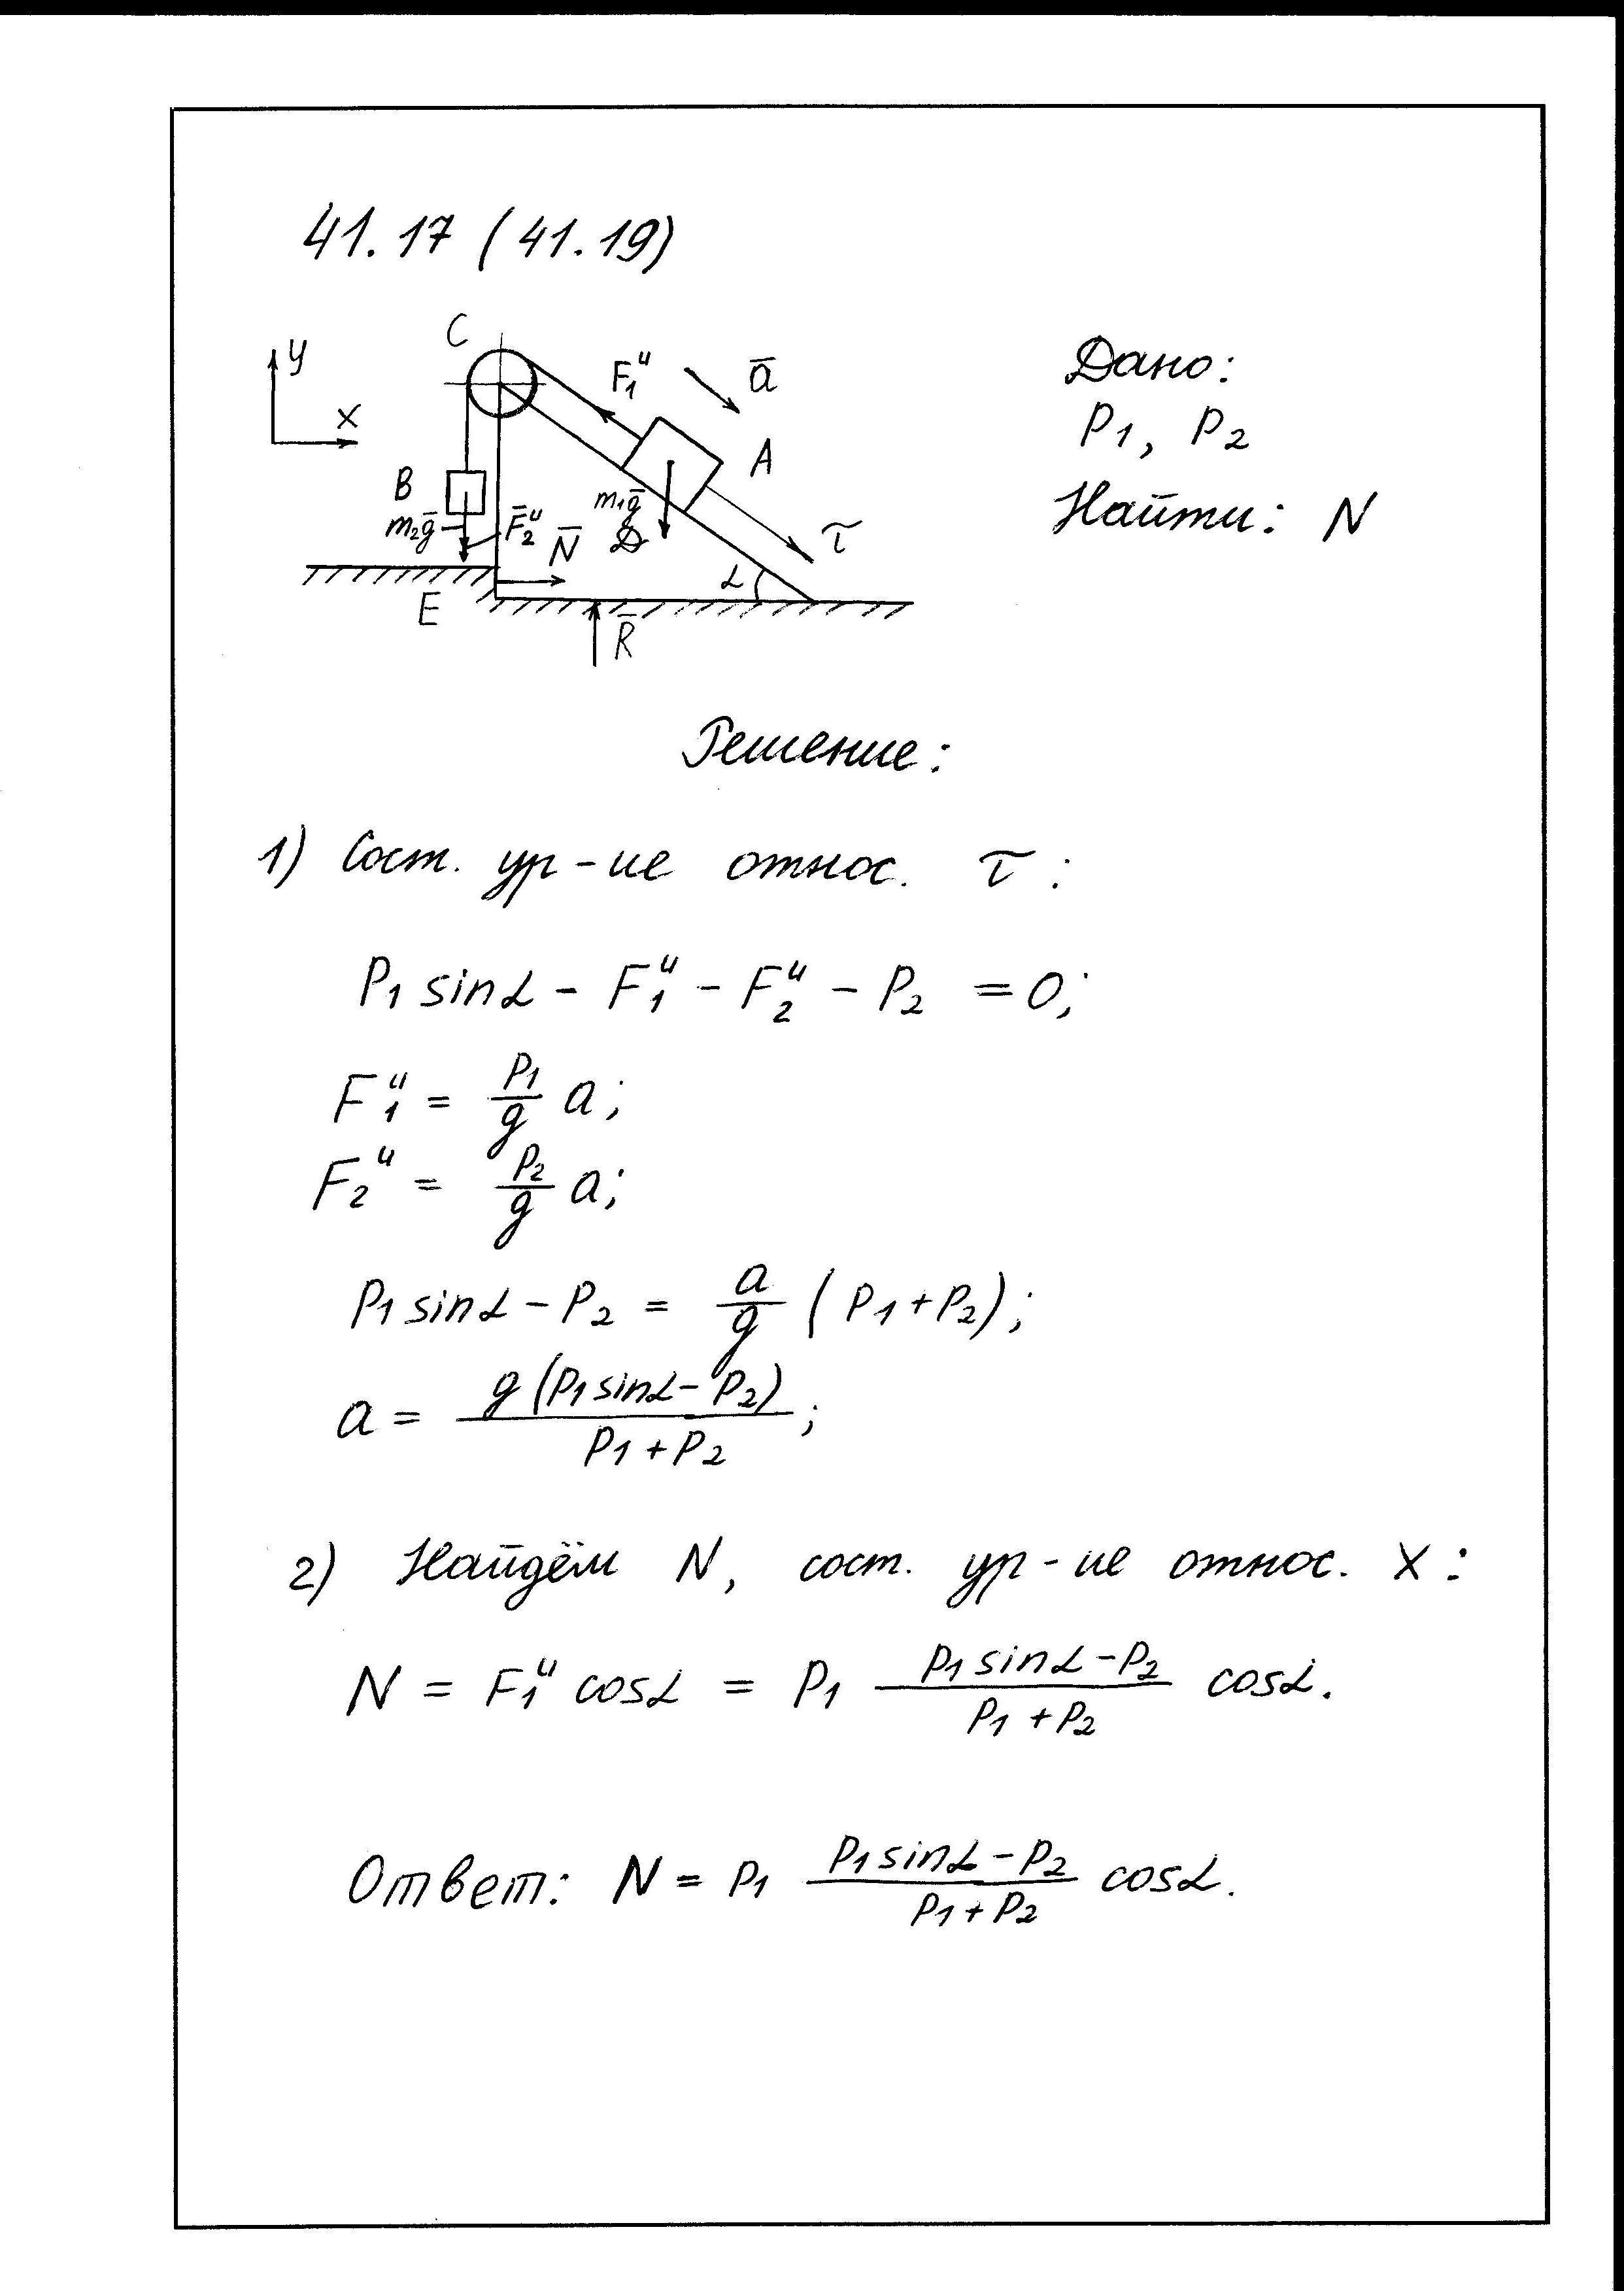 41.17 (41.19)
y
x
C
F₁ᵘ
a̅
A
B
m₂g̅
F̅₂ᵘ
N̅
m₁g̅
D
τ
α
E
R̅
Дано:
P₁, P₂
Найти: N
Решение:
1) Сост. ур-ие относ. τ :
P₁ sinα - F₁ᵘ - F₂ᵘ - P₂ = 0;
F₁ᵘ = P₁/g a;
F₂ᵘ = P₂/g a;
P₁ sinα - P₂ = a/g (P₁+P₂);
a = g(P₁ sinα - P₂)/(P₁+P₂);
2) Найдём N, сост. ур-ие относ. X :
N = F₁ᵘ cosα = P₁ (P₁ sinα - P₂)/(P₁+P₂) cosα.
Ответ: N = P₁ (P₁ sinα - P₂)/(P₁+P₂) cosα.